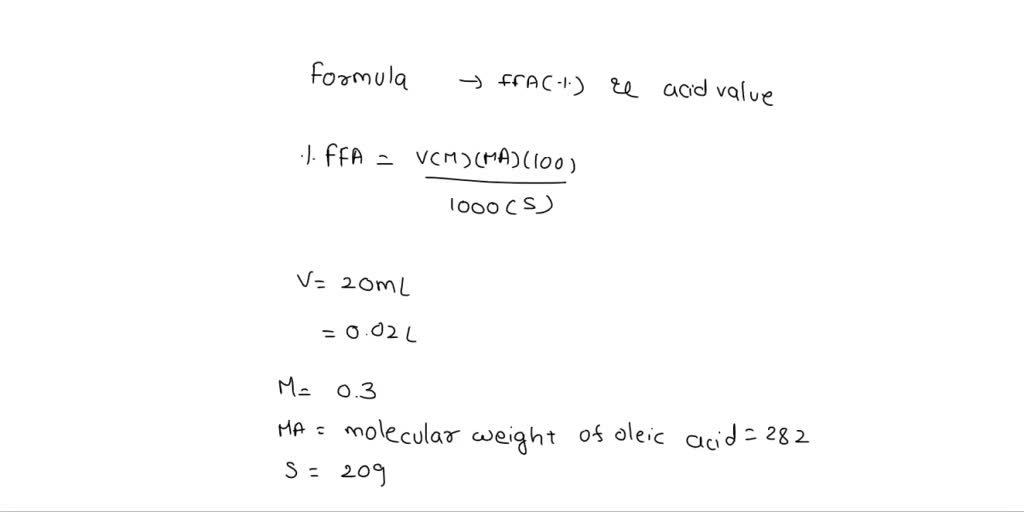 Formula → FFA(%) & acid value
% FFA = V(M)(MA)(100)
1000(S)
V= 20mL
= 0.02L
M= 0.3
MA = molecular weight of oleic acid = 282
S = 20g